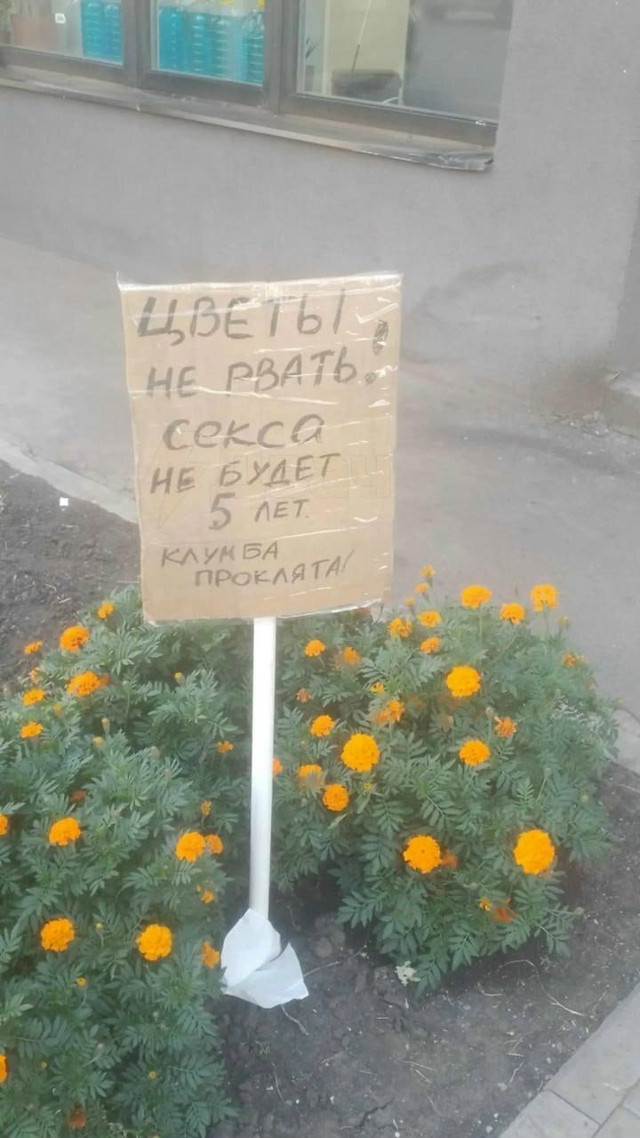 ЦВЕТЫ
НЕ РВАТЬ!
СЕКСА
НЕ БУДЕТ
5 ЛЕТ.
КЛУМБА
ПРОКЛЯТА!